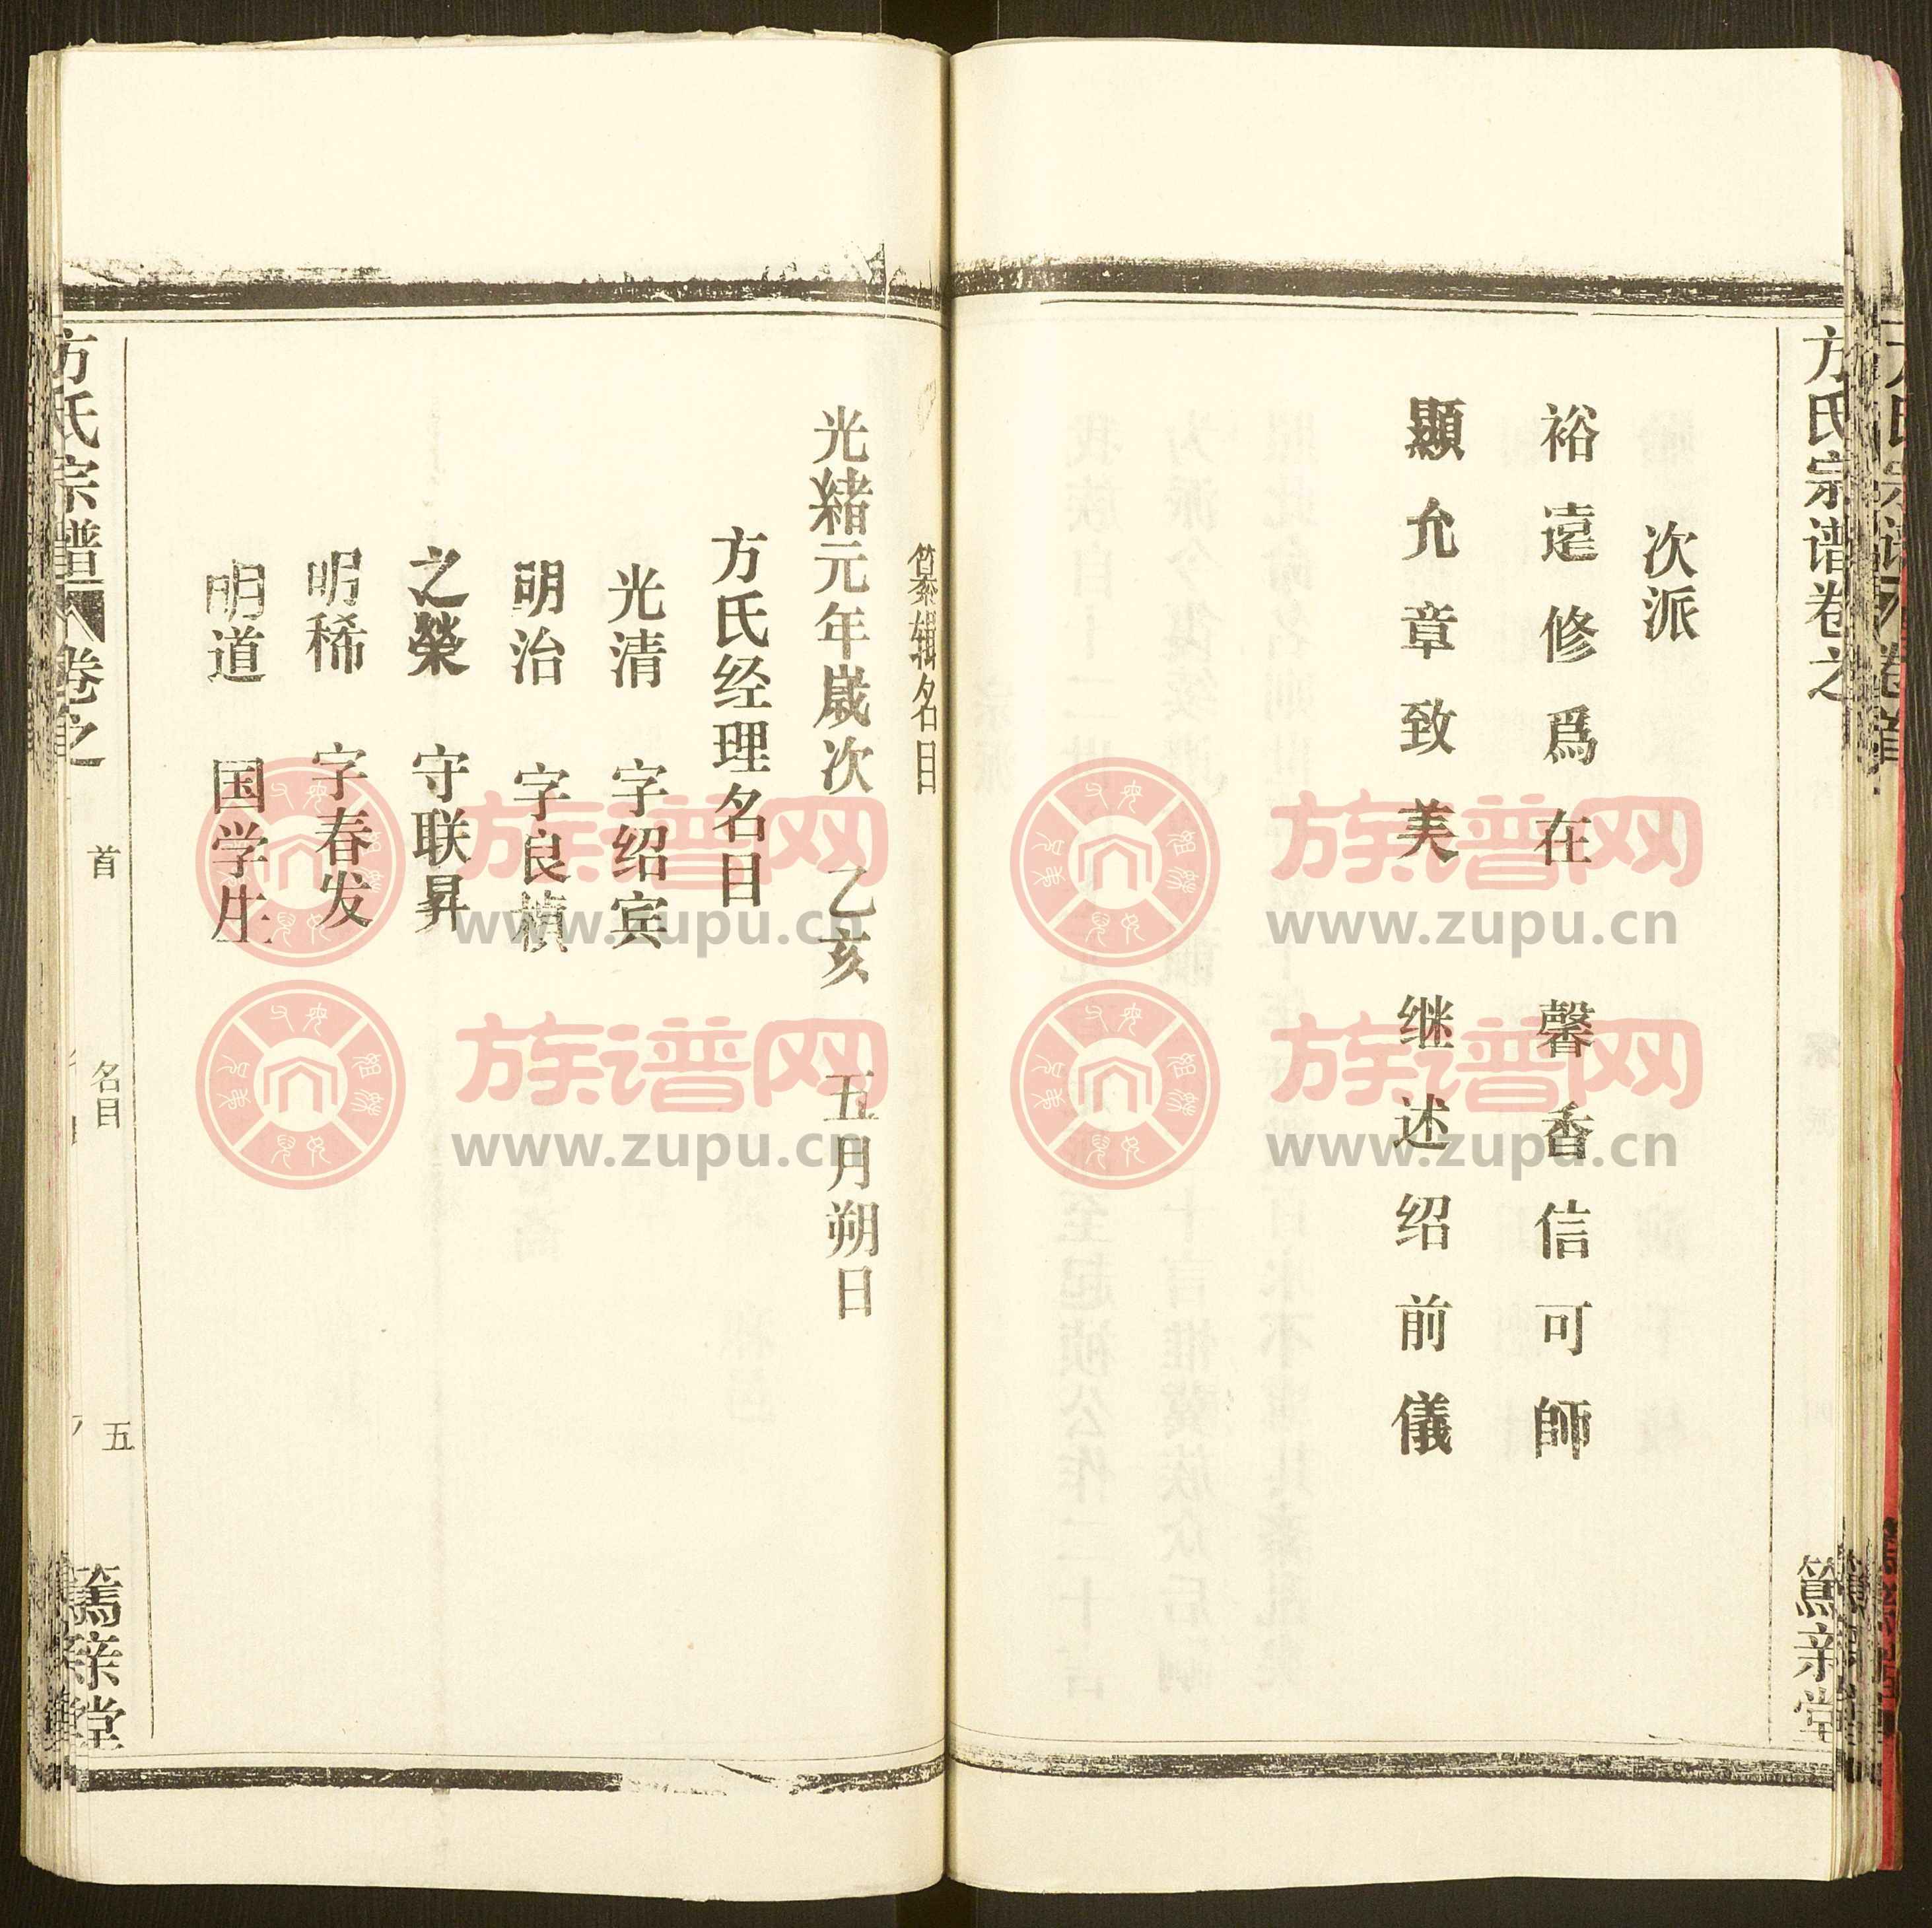 方氏宗谱卷之
篤亲堂
次派
裕遠修爲在 馨香信可師
顯允章致美 继述绍前儀
纂辑名目
光緒元年歲次 乙亥 五月朔日
方氏经理名目
光清 字绍宾
明治 字良楨
之榮 守联昇
明稀 字春发
明道 国学生
方氏宗譜 卷之
首
名目
五
篤亲堂
族谱网
www.zupu.cn
族谱网
www.zupu.cn
族谱网
www.zupu.cn
族谱网
www.zupu.cn